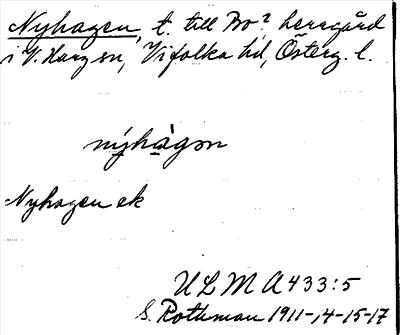 Nyhagen, t. till Bo? herrgård
i V. Harg sn, Vifolka hd, Österg. l.
nýhàgən
Nyhagen ek
ULMA 433:5
S. Rothman 1911-14-15-17